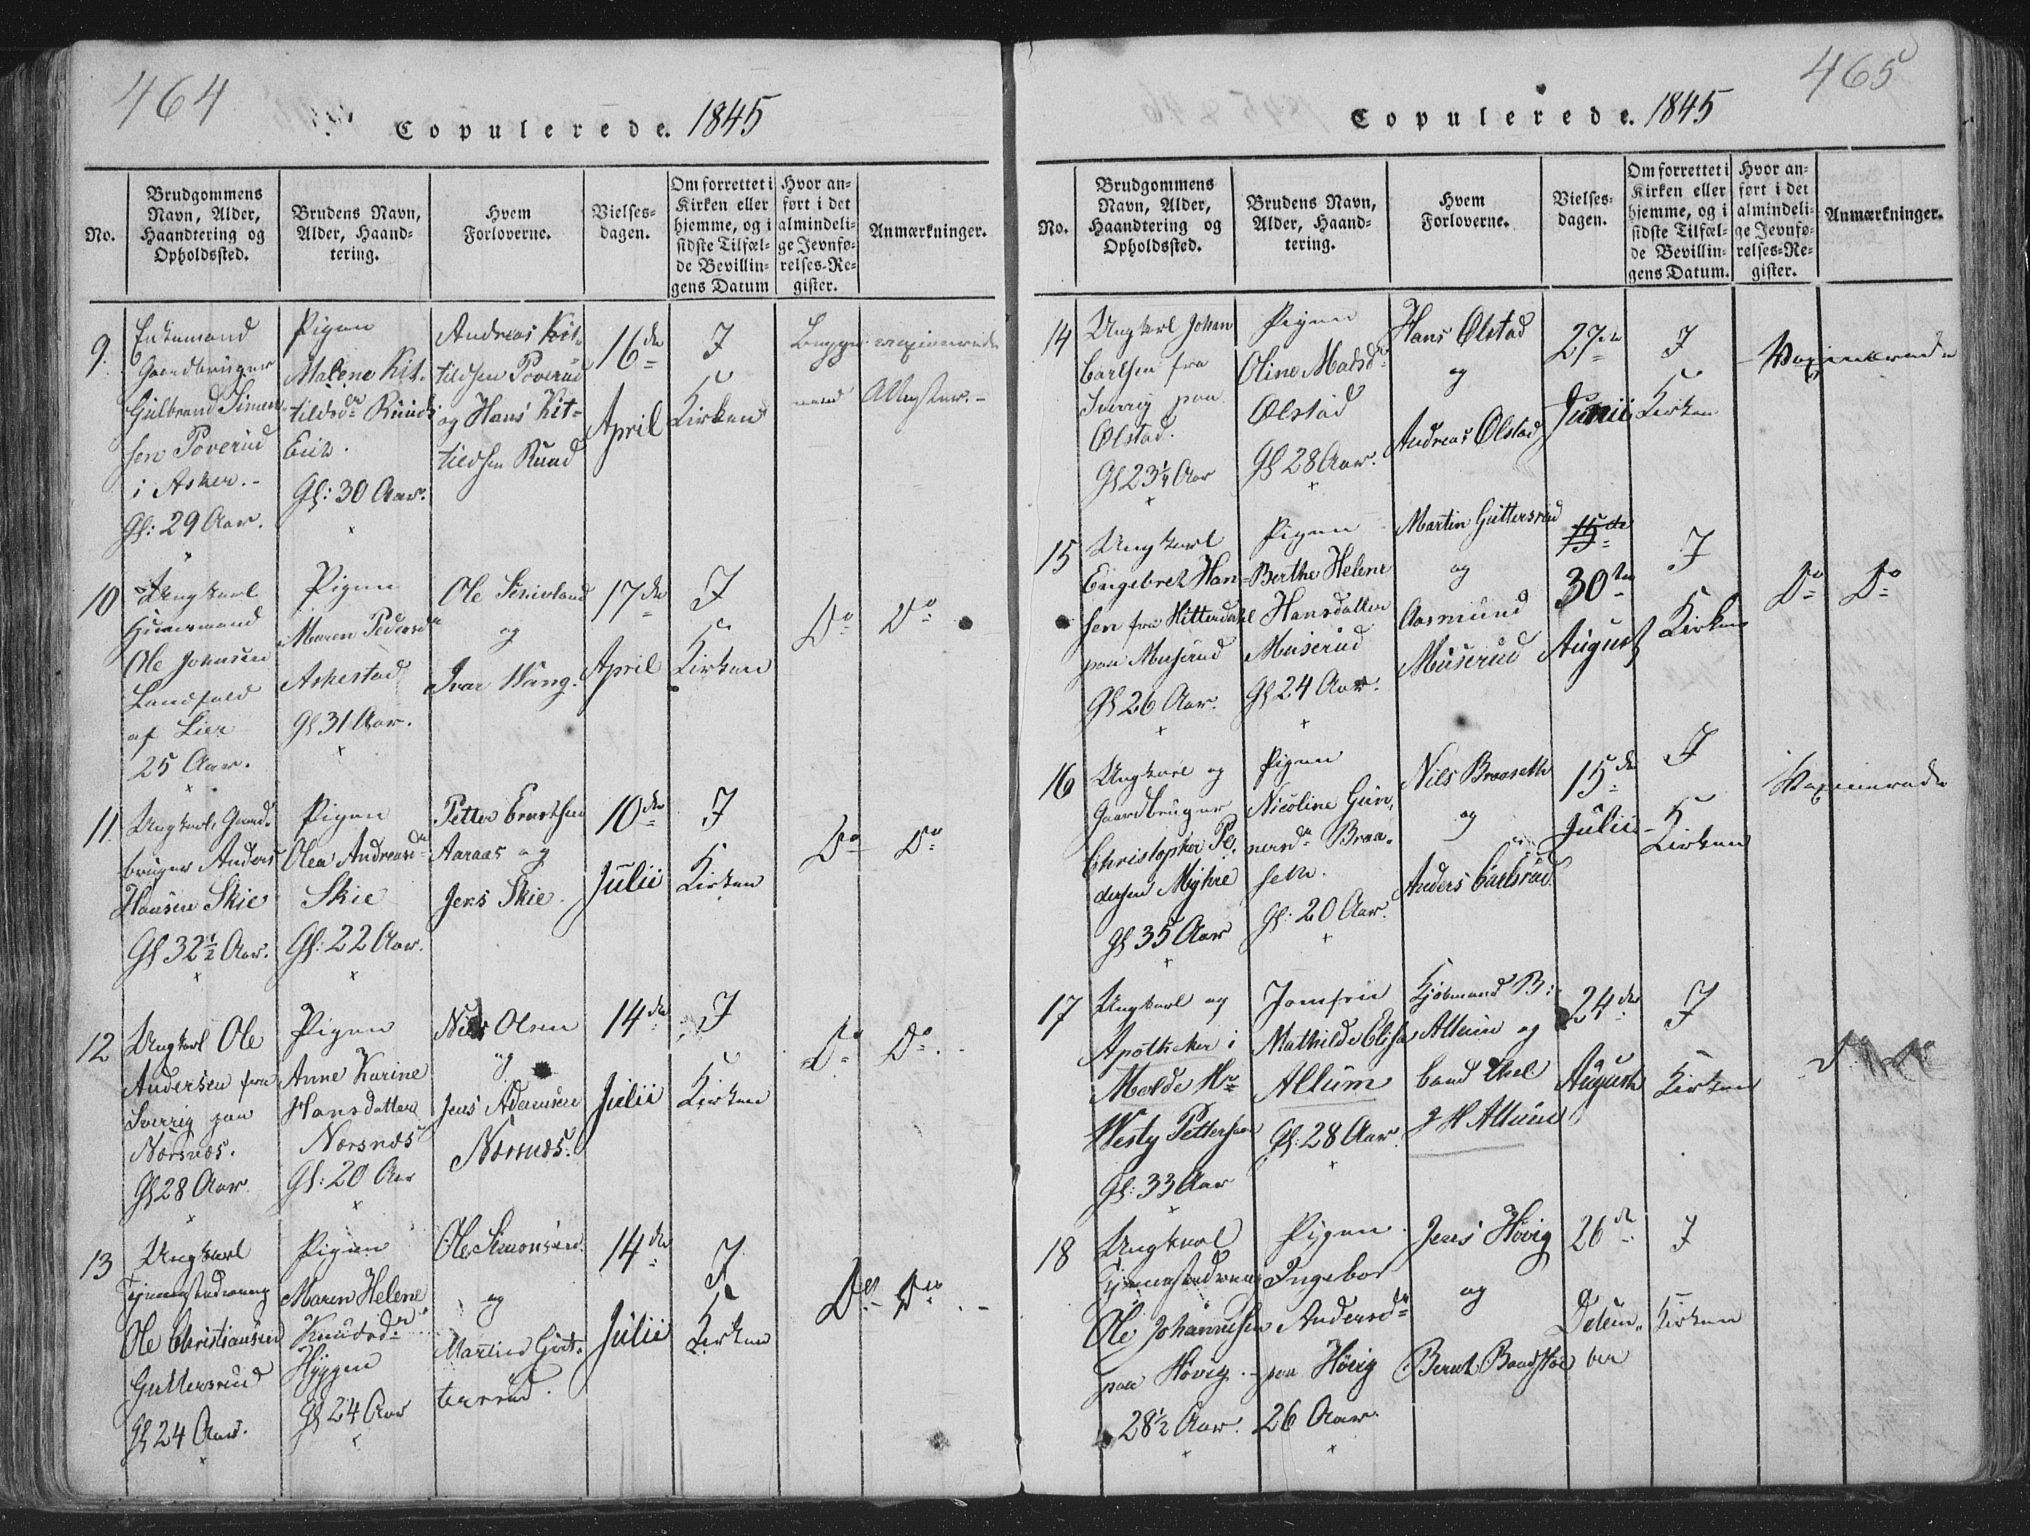 464
Copulerede. 1845
No.
Brudgommens
Navn, Alder,
Haandtering og
Opholdssted.
Brudens Navn,
Alder, Haand-
tering.
Hvem
Forloverne.
Vielses-
dagen.
Om forrettet i
Kirken eller
hjemme, og i
sidste Tilfæl-
de Bevillin-
gens Datum
Hvor an-
ført i det
almindeli-
ge Jevnfø-
relses-Re-
gister.
Anmærkninger.
9.
Enkemand
Gaardbruger
Gulbrand Simen-
sen Poverud
i Asker.-
Gl: 29 Aar.
Pigen
Malene Kit-
tilsdr Ruud
Gl: 30 Aar.
Andreas Kit-
tilsen Poverud
og Hans Kit-
tilsen Ruud
16de
April
I
Kirken
Begge vaxinerede
med Attester.-
10
Ungkarl
Huusmand
Ole Johnsen
Landfald
af Lier
25 Aar.
Pigen
Maren Pedersdr
Askestad
Gl 31 Aar.
Ole
og
Ivar Wang.
17de
April
I
Kirken
Do Do
11
Ungkarl, Gaard-
bruger Anders
Hansen Skie
Gl 32½ Aar.
Pigen
Olea Andreasdr
Skie
Gl: 22 Aar.
Petter Erertsen
Aaraas og
Jens Skie.
10de
Julii
I
Kirken
Do Do
12
Ungkarl Ole
Andersen fra
Sverrig paa
Nærsnæs.
Gl 28 Aar.
Pigen
Anne Karine
Hansdatter
Nærsnæs
Gl: 20 Aar
Nils Olsen
og
Jens Adamsen
Nærsnæs.
14de
Julii
I
Kirken
Do Do.
13
Ungkarl
Tjenestedreng
Ole Christiansen
Guttersrud
Gl 24 Aar.
Pigen
Maren Helene
Knudsdr
Hyggen
Gl 24 Aar
Ole Simonsen
og
Martin Gut-
tersrud.
14de
Julii
I
Kirken
Do Do.-
465
Copulerede. 1845
No.
Brudgommens
Navn, Alder,
Haandtering og
Opholdssted.
Brudens Navn,
Alder, Haand-
tering.
Hvem
Forloverne.
Vielses-
dagen.
Om forrettet i
Kirken eller
hjemme, og i
sidste Tilfæl-
de Bevillin-
gens Datum.
Hvor an-
ført i det
almindeli-
ge Jevnfø-
relses-Re-
gister.
Anmærkninger.
14
Ungkarl Johan
Carlsen fra
Sverrig paa
Ølstad.
Gl 23¼ Aar
Pigen
Oline Matsdr
Ølstad
Gl 28 Aar.
Hans Ølstad
og
Andreas Ølstad
27de
Junii
I
Kirken
Vaxinerede
15
Ungkarl
Engebret Han-
sen fra Hitterdahl
paa Muserud
Gl 26 Aar.
Pigen
Berthe Helene
Hansdatter
Muserud
Gl 24 Aar.
Martin Guttersrud
og
Aasmund
Muserud
15de
30te
August
I
Kirken
Do Do
16
Ungkarl og
Gaardbruger
Christopher Pe-
dersen Myhre
Gl 35 Aar
Pigen
Nicoline Gun-
nersdr Braa-
seth.
Gl: 20 Aar.
Nils Braaseth
og
Anders Carlsrud
15de
Julii
I
Kirken
Vaxinerede
17
Ungkarl og
Apotheker i
Molde Hr
Westy Pettersen
Gl: 33 Aar
Jomfru
Mathilde Elise
Allum
Gl: 28 Aar.
Kjøbmand B:
Allum og
Cand Theol
J H Allum
24de
August
I
Kirken
18
Ungkarl
Tjenestedreng
Ole Johannesen
paa Høvig.-
28½ Aar.
Pigen
Ingebor
Andersdr
paa Høvig
26 Aar.
Jens Høvig
og
Bernt
26de
I
Kirken